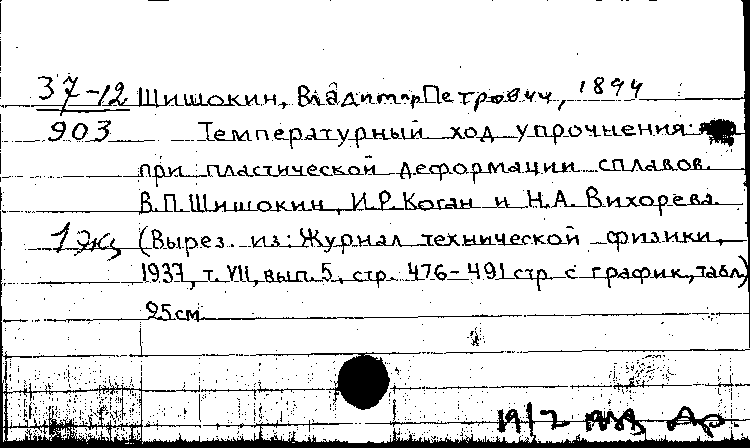 37-12 Шишокин, Владимир Петрович, 1894
903 Температурный ход упрочнения
при пластической деформации сплавов.
В.П.Шишокин, И.Р.Коган и Н.А. Вихорева.
1 экз (Вырез. из: Журнал технической физики,
1937, т. VII, вып. 5, стр. 476-491 стр. с график., табл.)
25 см
19/2